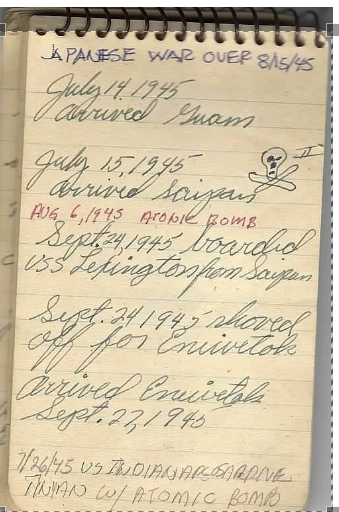 JAPANESE WAR OVER 8/15/45
July 14, 1945
arrived Guam
July 15, 1945
arrived Saipan
II
AUG 6, 1945 ATOMIC BOMB
Sept. 24, 1945 boarded
USS Lexington from Saipan
Sept. 24 1945 shoved
off for Eniwetok
Arrived Eniwetok
Sept. 27, 1945
7/26/45 US INDIANAPOLIS ARRIVE
TINIAN W/ ATOMIC BOMB